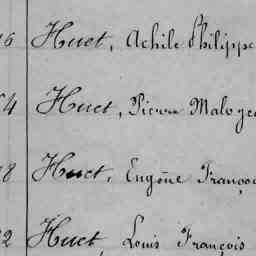 6 Huet, Achile Philippe
4 Huet, Pierre Malo
8 Huet, Eugène François
2 Huet, Louis François